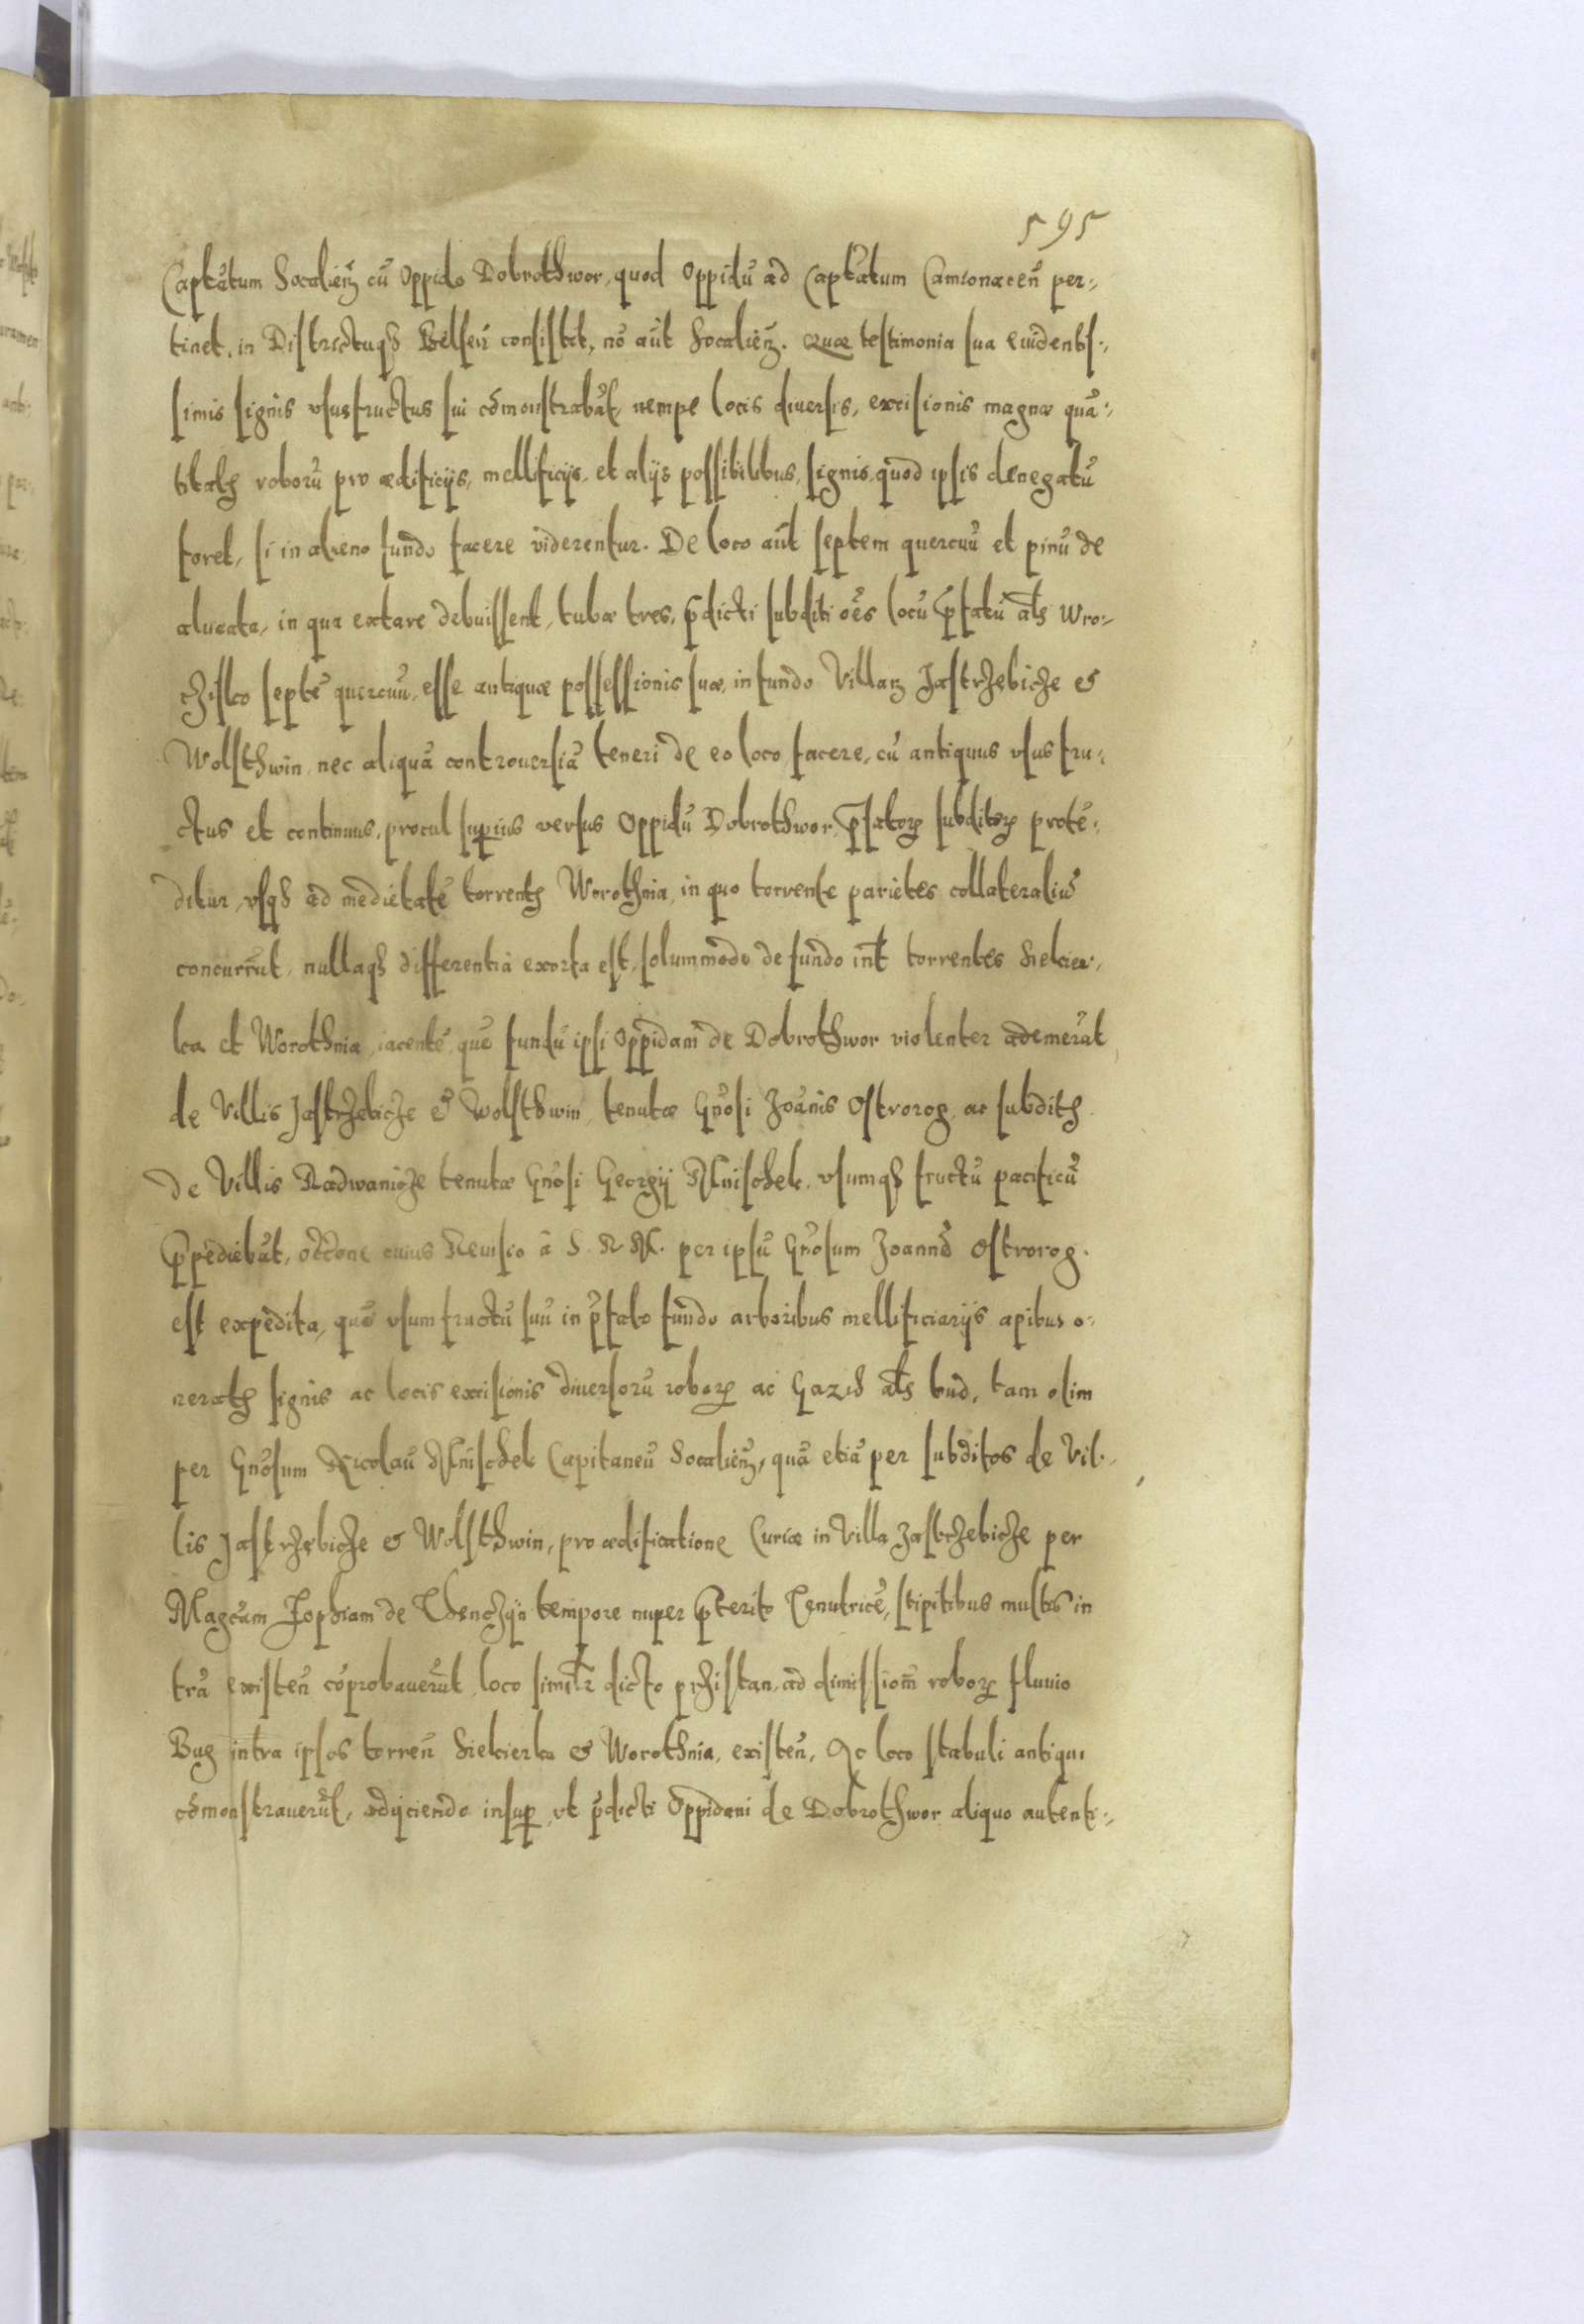 595
Captãtum Socalieñ cũ Oppido Dobrothwor, quod Oppidũ ad Captãtum Camionaceñ per-
tinet, in Districtuqȝ Belseñ consistit, nõ aũt Socalieñ. Quæ testimonia sua euidentis-
simis signis vsusfructus sui cõmonstrabãt, nempe locis diuersis, excisionis magnæ quã-
titatȝ roborũ pro ædificijs, mellificijs, et alijs possibilibus, signis, quod ipsis denegatũ
foret, si in alieno fundo facere viderentur. De loco aũt septem quercuũ et pinũ de
alueata, in qua extare debuissent, tubæ tres, p̃dicti subditi oẽs locũ p̃fatũ als Wro-
chisko septẽ quercuũ, esse antiquæ possessionis suæ, in fundo Villarȝ Jastrzebicze &
Wolsthwin, nec aliquã controuersiã teneri de eo loco facere, cũ antiquus vsusfru-
ctus et continuus, procul sup̱ius versus Oppidũ Dobrothwor, p̃fatorȝ subditorȝ protẽ-
ditur, vsqȝ ad medietatẽ torrentȝ Worothnia, in quo torrente parietes collateraliũ
concurrũt, nullaqȝ differentia exorta est, solummodo de fundo int̃ torrentes Siekier-
ka et Worothnia, iacentẽ, quẽ fundũ ipsi Oppidani de Dobrothwor violenter ademerũt
de Villis Jastrzebicze & Wolsthwin, tenutæ Gñosi Joãnis Ostrorog, ac subditȝ
de Villis Radwanicze tenutæ Gñosi Georgij Mnischek, vsumqȝ fructũ pacificũ
p̃pediebãt, occ̃one cuius Reuisio â S. R. M. per ipsũ Gñosum Joannẽ Ostrorog
est expedita, quẽ vsumfructũ suũ in p̃fato fundo arboribus mellificiarijs apibus o-
neratȝ signis ac locis excisionis diuersorũ roborȝ ac Gazis als bud, tam olim
per Gñosum Nicolaũ Mnischek Capitaneũ Socalieñ, quã etiã per subditos de Vil-
lis Jastrzebicze & Wolsthwin, pro ædificatione Curiæ in Villa Jastrzebicze per
Magcam Zophiam de Thenczyn tempore nuper p̃terito Tenutricẽ, stipitibus multis in
tra existeñ cõprobauerũt, loco similr dicto przistan, ad dimissioñ roborȝ fluuio
Bug intra ipsos torreñ Siekierka & Worothnia, existeñ, Ac loco stabuli antiqui
cõmonstrauerũt, adijciendo insup̱, vt p̃dicti Oppidani de Dobrothwor aliquo autenti-